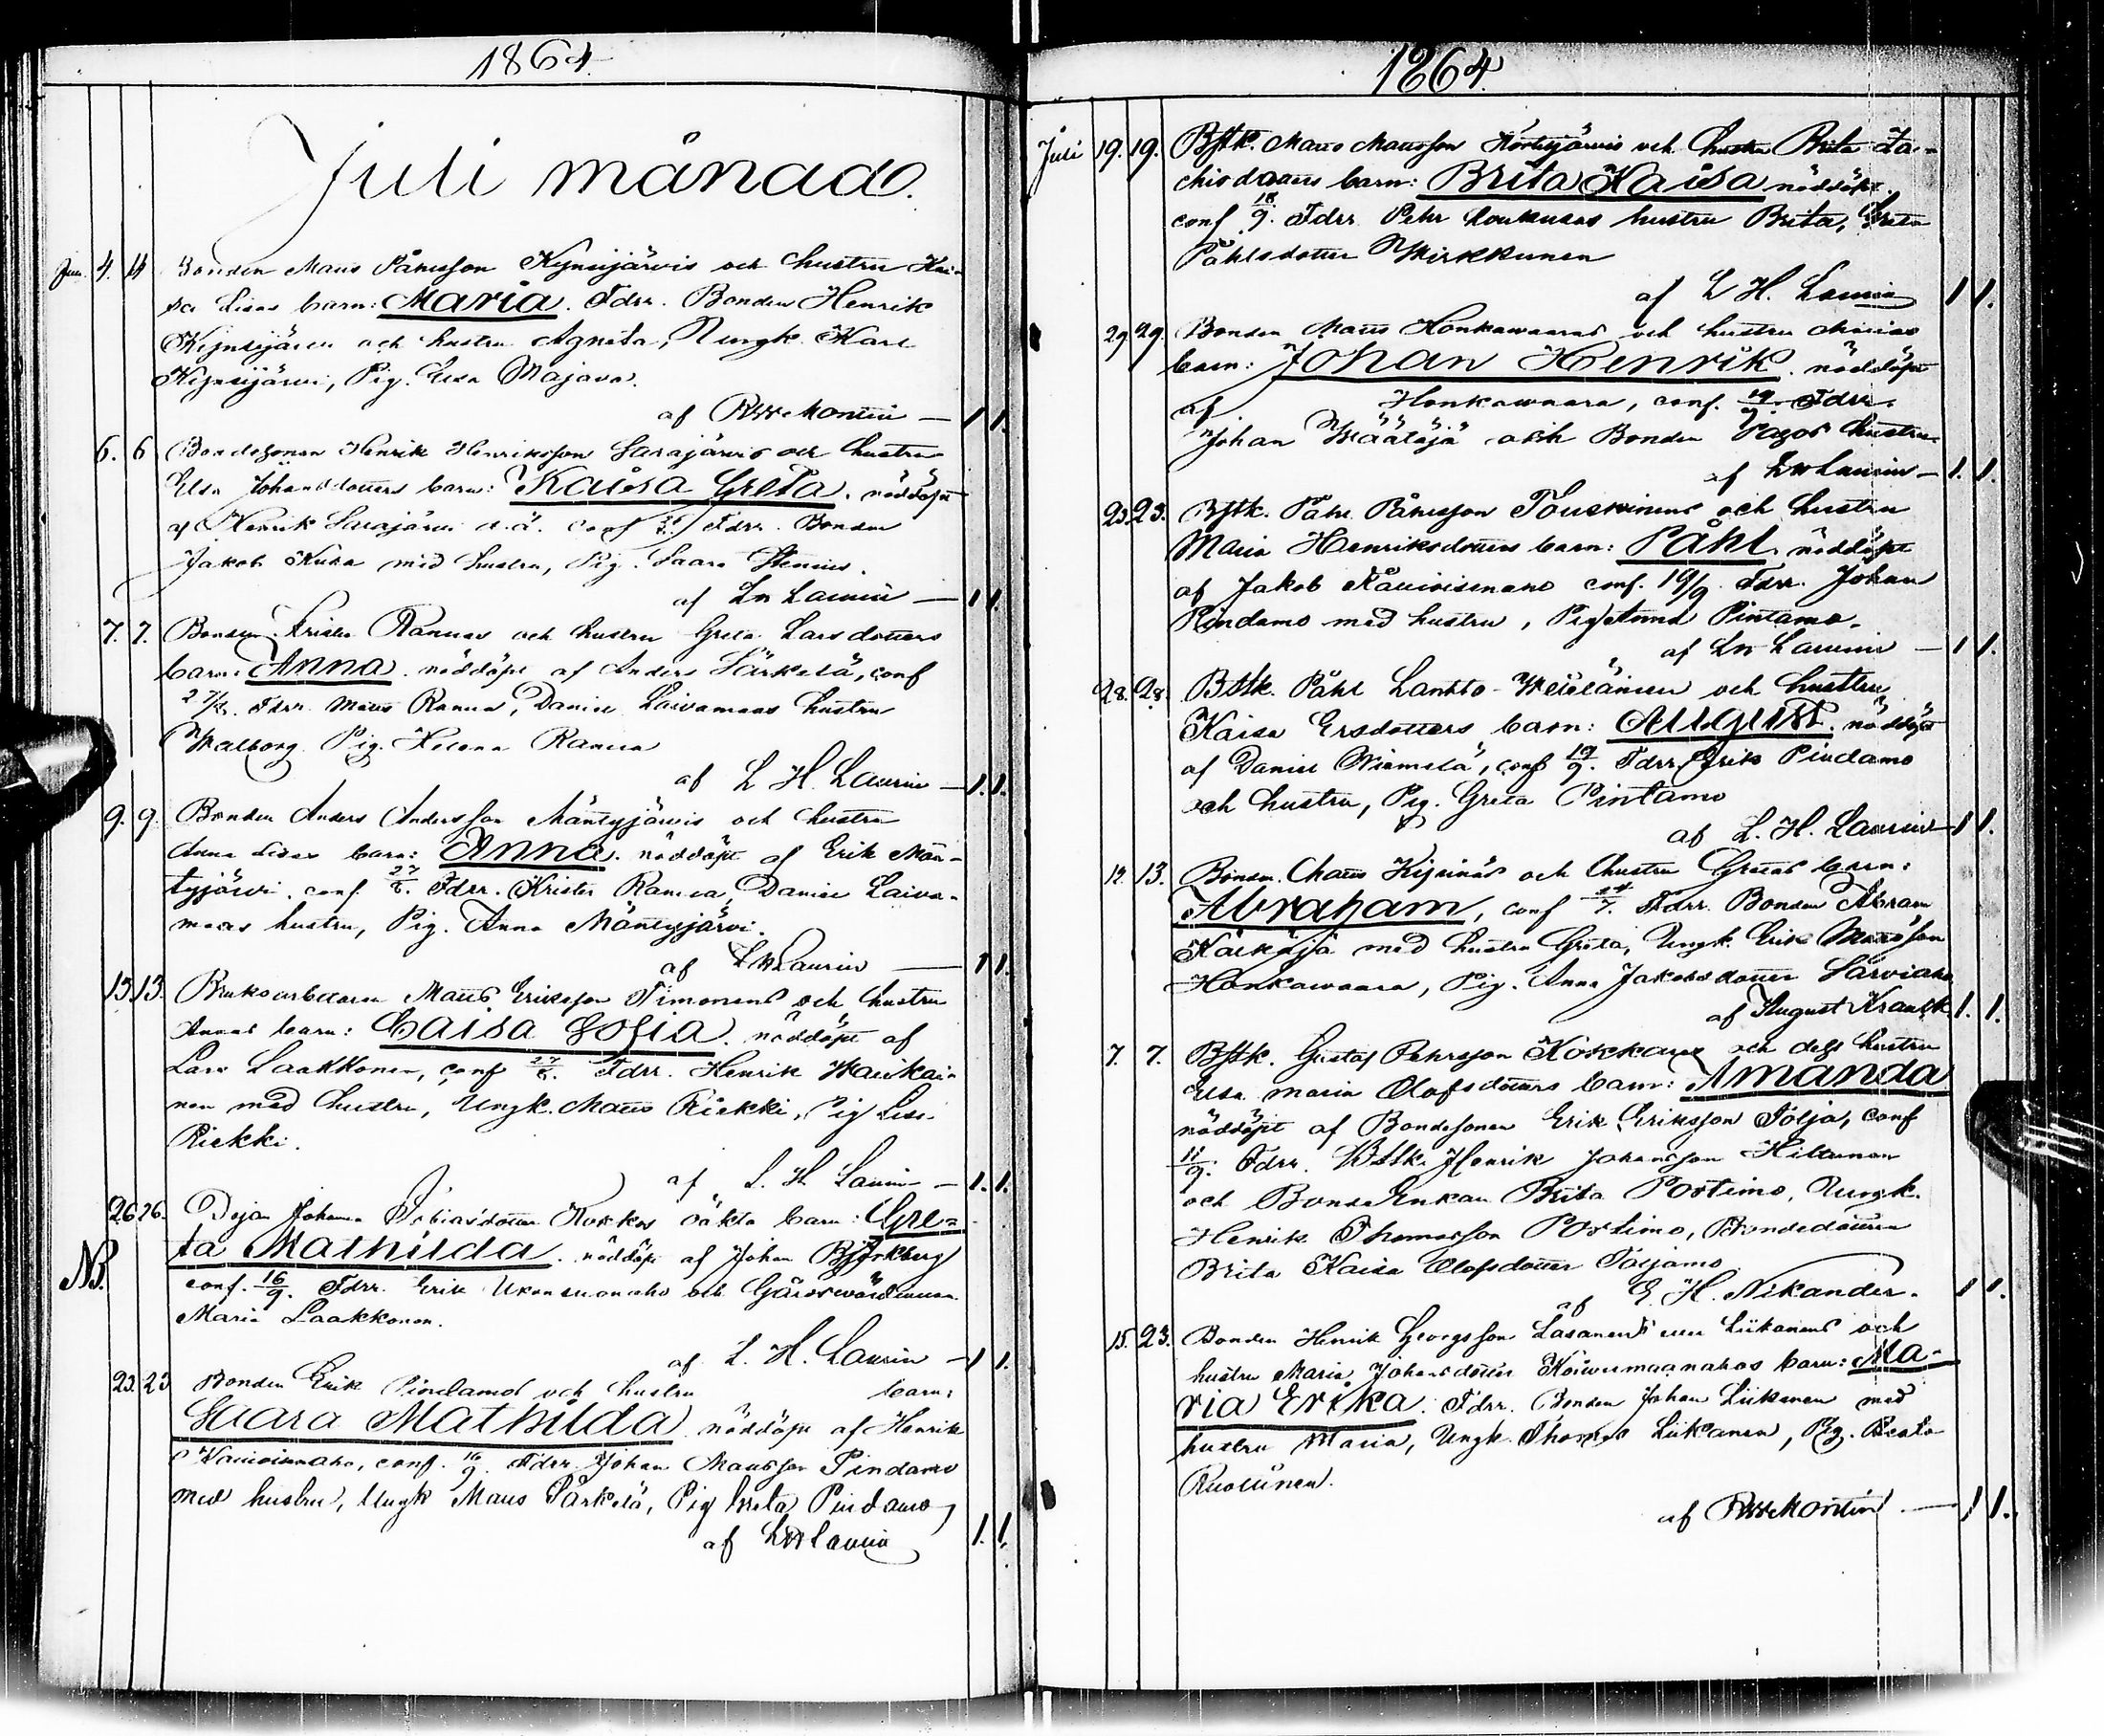 1864.
Juli månad.
4. 4 Bonden Mans Påhlsson Kynsijärvis och hustru Kai-
sa Lisas barn: Maria. Fdrr. Bonden Henrik
Kynsijärvi och hustru Agneta, Ungk. Karl
Kynsijärvi, Pig. Elsa Majava.
af Montin — 1 1.
6. 6 Bondesonen Henrik Henriksson Sarajärvis och hustru
Elsa Johansdotters barn: Kaisa Greta. nöddöpt
af Henrik Sarajärvi d.ä. conf Fdrr. Bonden
Jakob Kuha med hustru, Pig. Saara
af Laurin — 1 1.
7. 7. Bonden Krister Ranuas och hustru Greta Larsdotters
barn: Anna. nöddöpt af Anders Särkelä, conf
27/8. Fdrr. Mans Ranua, Daniel Laivamaas hustru
Walborg Pig. Helena Ranua
af L H. Laurin — 1. 1.
9. 9. Bonden Anders Andersson Mäntyjärvis och hustru
Anna Lisas barn: Anna. nöddöpt af Erik Män-
tyjärvi. conf. 27/8. Fdrr. Krister Ranua, Daniel Laiva-
maas hustru, Pig. Anna Mäntyjärvi.
af Laurin — 1 1.
13. 13. Bruksarbetaren Mans Eriksson Timonens och hustru
Annas barn: Caisa Sofia. nöddöpt af
Lars Laakkonen, conf 27/8. Fdrr. Henrik Haukai-
nen med hustru, Ungk. Mans Riekki, Pig Lisa
Riekki.
af L. H Laurin — 1. 1.
26 26. Dejan Johanna Tobiasdotter Kokkos oäkta barn: Gre-
NB. ta Mathilda. nöddöpt af Johan Björkberg
conf. 16/9. Fdrr. Erik och
Maria Laakkonen.
af L. H. Laurin — 1 1.
23. 23 Bonden Erik Pindamos och hustru barn:
Saara Mathilda nöddöpt af Henrik
conf. 16/9. Fdrr. Johan Mansson Pindamo
med hustru, Ungk Mans Särkelä, Pig Greta Pindamo
af Laurin 1. 1.
1864.
Juli 19. 19. Bstk. Mans Mansson och hustru Brita Za-
chrisdotters barn: Brita Kaisa nöddöpt.
conf 18/9. Fdrr. Pehr Loukusas hustru Brita, Greta
Påhlsdotter Wirkkunen
af L H. Laurin 1 1.
29 29. Bonden Mans Honkawaaras och hustru Marias
barn: Johan Henrik. nöddöpt
af Honkawaara, conf. 19/9. Fdrr.
Johan Määttäjä och Bonden hustru
af Laurin — 1. 1.
23 23. Bstk. Påhl Påhlsson och hustru
Maria Henriksdotters barn: Påhl. nöddöpt
af Jakob conf. 19/9. Fdrr. Johan
Pindamo med hustru, Pig Anna Pintamo.
af Laurin — 1 1.
28. 28. Bstk. Påhl Lantto- och hustru
Kaisa Ersdotters barn: August. nöddöpt
af Daniel conf 19/9. Fdrr Erik Pindamo
och hustru, Pig. Greta Pintamo
af L. H. Laurin 1 1.
12. 13. Bonden Mans och hustru Gretas barn:
Abraham, conf 24/7. Fdrr. Bonden Abram
med hustru Greta, Ungk. Erik Mansson
Honkawaara, Pig. Anna Jakobsdotter
af August Krank 1. 1.
7. 7. Bstk. Gustaf Pehrsson och dess hustru
Elsa Maria Olofsdotters barn: Amanda
nöddöpt af Bondesonen Erik Eriksson Tolja, conf
11/9. Fdrr. Bstk. Henrik Johansson Hiltunen
och Bonde Enkan Brita Portimo, Ungk.
Henrik Thomasson Portimo, Bondedottren
Brita Kaisa Olofsdotter
af E. H. Nikander. 1 1.
15. 23. Bonden Henrik Georgsson Lasanens Liikanens och
hustru Maria Johansdotter barn: Ma-
ria Erika. Fdrr. Bonden Johan Liikanen med
hustru Maria, Ungk. Thomas Liikanen, Pig. Beata
af Montin — 1 1.